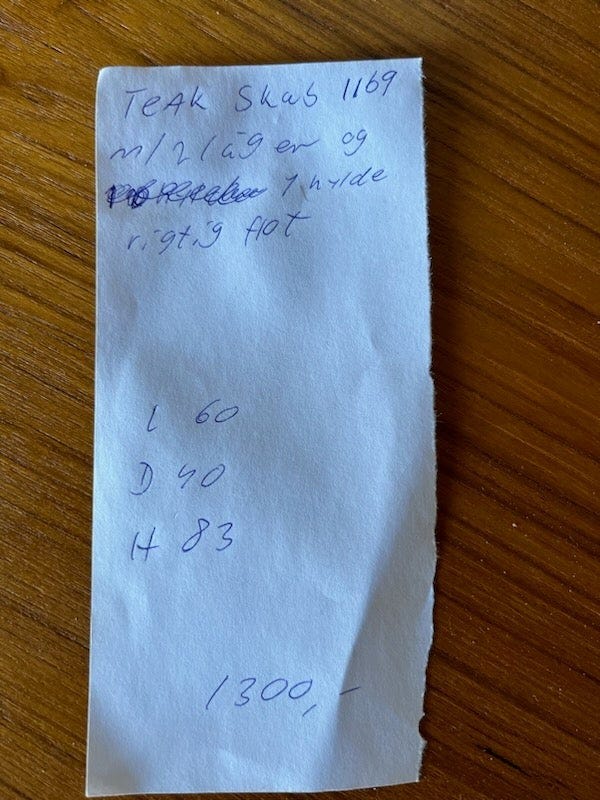 Teak Skab 1169
m/2 låger og
1 hylde
rigtig flot
L 60
D 40
H 83
1300,-